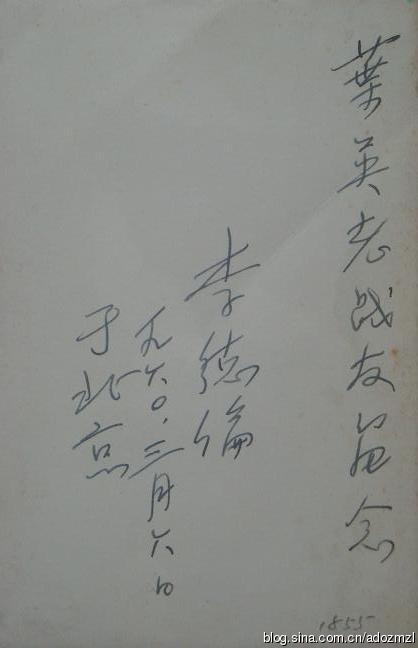 葉英老战友留念
李德倫
一九六〇.三月六日
于北京
1855
blog.sina.com.cn/adozmzl